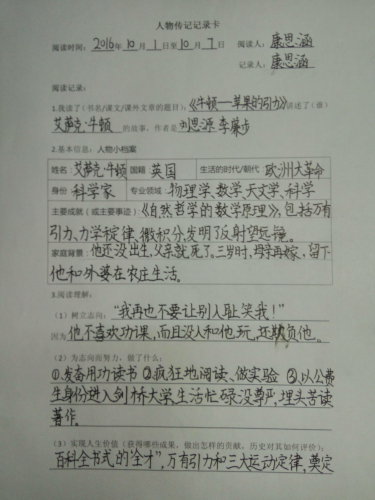 人物传记记录卡
阅读时间：2016年10月1日至10月7日 阅读人：康思涵
记录人：康思涵
阅读记录：
1.我读了（书名/课文/课外文章的题目）：《牛顿—苹果的引力》，讲述了（谁）
艾萨克·牛顿 的故事，作者是刘思源 李廉步
2.基本信息：人物小档案
姓名 艾萨克·牛顿 国籍 英国 生活的时代/朝代 欧洲大革命
身份 科学家 专业领域 物理学、数学、天文学、科学
主要成就（或主要事迹）：《自然哲学的数学原理》，包括万有
引力、力学定律、微积分，发明了反射望远镜。
家庭背景：他还没出生，父亲就死了。三岁时，母亲再嫁，留下
他和外婆在农庄生活。
3.阅读理解：
（1）树立志向：“我再也不要让别人耻笑我！”
因为他不喜欢功课，而且没人和他玩，还欺负他。
（2）为志向而努力，做了什么：
①发奋用功读书 ②疯狂地阅读、做实验 ③以公费
生身份进入剑桥大学生活忙碌没尊严，埋头苦读
著作。
（3）实现人生价值（获得哪些成果，做出怎样的贡献，历史对其如何评价）：
百科全书式的“全才”，万有引力和三大运动定律，奠定